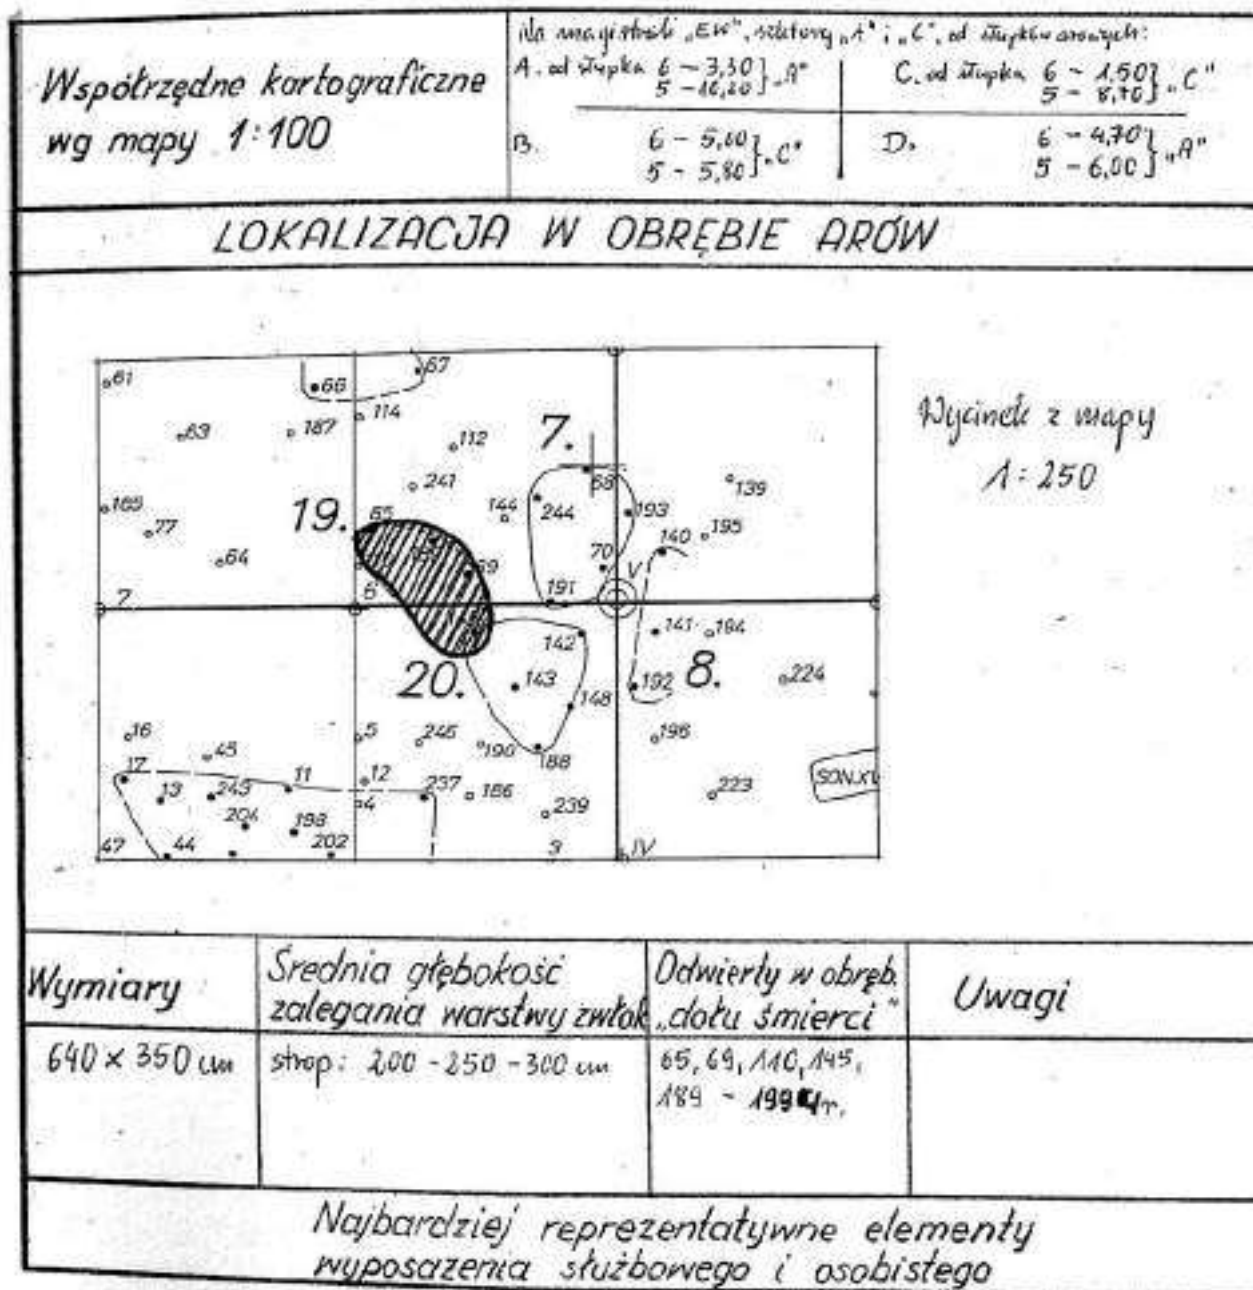 Współrzędne kartograficzne
wg mapy 1:100
Na magistrali „EW”, sektory „A” i „C”, od słupków arowych:
A. od słupka 6 – 3,30
5 – 10,20 } „A”
C. od słupka 6 – 1,50
5 – 8,70 } „C”
B. 6 – 5,60
5 – 5,80 } „C”
D. 6 – 4,70
5 – 6,00 } „A”
LOKALIZACJA W OBRĘBIE ARÓW
61
66
67
63
187
114
112
7.
241
68
139
165
77
19.
65
144
244
193
195
140
64
69
70
V
191
7
6
142
141
194
20.
143
192
8.
224
148
16
45
5
245
190
188
196
17
13
243
11
12
237
186
239
223
SON.XV
204
198
4
47
44
202
3
IV
Wycinek z mapy
1:250
Wymiary
Średnia głębokość
zalegania warstwy zwłok
Odwierty w obręb.
„dołu śmierci”
Uwagi
640 × 350 cm
strop: 200 - 250 - 300 cm
65, 69, 110, 145,
189 - 1994r.
Najbardziej reprezentatywne elementy
wyposażenia służbowego i osobistego